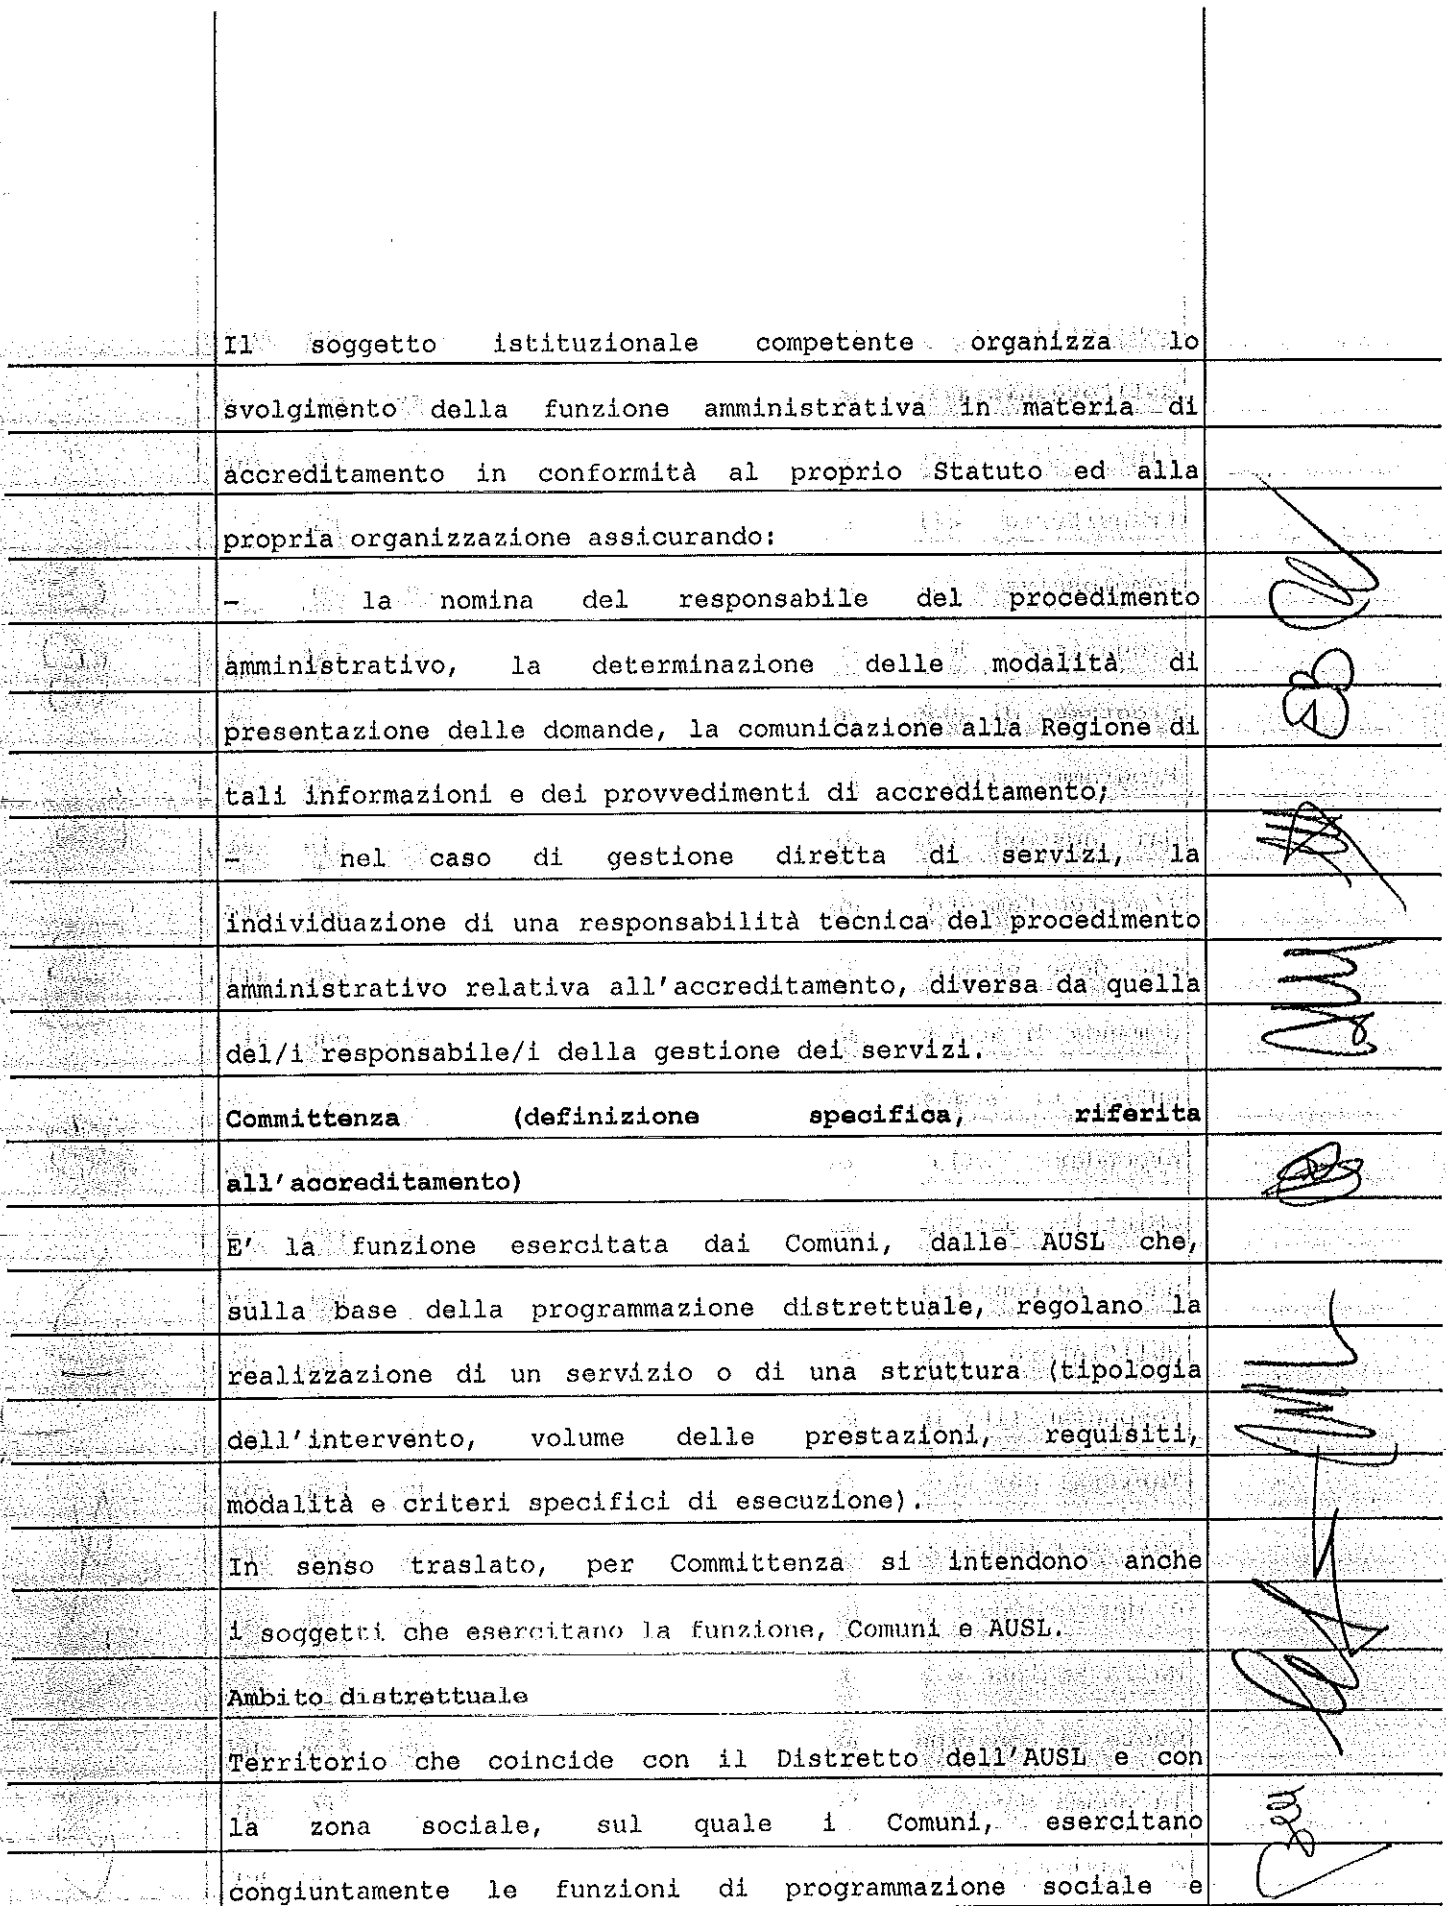 Il soggetto istituzionale competente organizza lo
svolgimento della funzione amministrativa in materia di
accreditamento in conformità al proprio Statuto ed alla
propria organizzazione assicurando:
– la nomina del responsabile del procedimento
amministrativo, la determinazione delle modalità di
presentazione delle domande, la comunicazione alla Regione di
tali informazioni e dei provvedimenti di accreditamento;
– nel caso di gestione diretta di servizi, la
individuazione di una responsabilità tecnica del procedimento
amministrativo relativa all'accreditamento, diversa da quella
del/i responsabile/i della gestione dei servizi.
Committenza (definizione specifica, riferita
all'accreditamento)
E' la funzione esercitata dai Comuni, dalle AUSL che,
sulla base della programmazione distrettuale, regolano la
realizzazione di un servizio o di una struttura (tipologia
dell'intervento, volume delle prestazioni, requisiti,
modalità e criteri specifici di esecuzione).
In senso traslato, per Committenza si intendono anche
i soggetti che esercitano la funzione, Comuni e AUSL.
Ambito distrettuale
Territorio che coincide con il Distretto dell'AUSL e con
la zona sociale, sul quale i Comuni, esercitano
congiuntamente le funzioni di programmazione sociale e